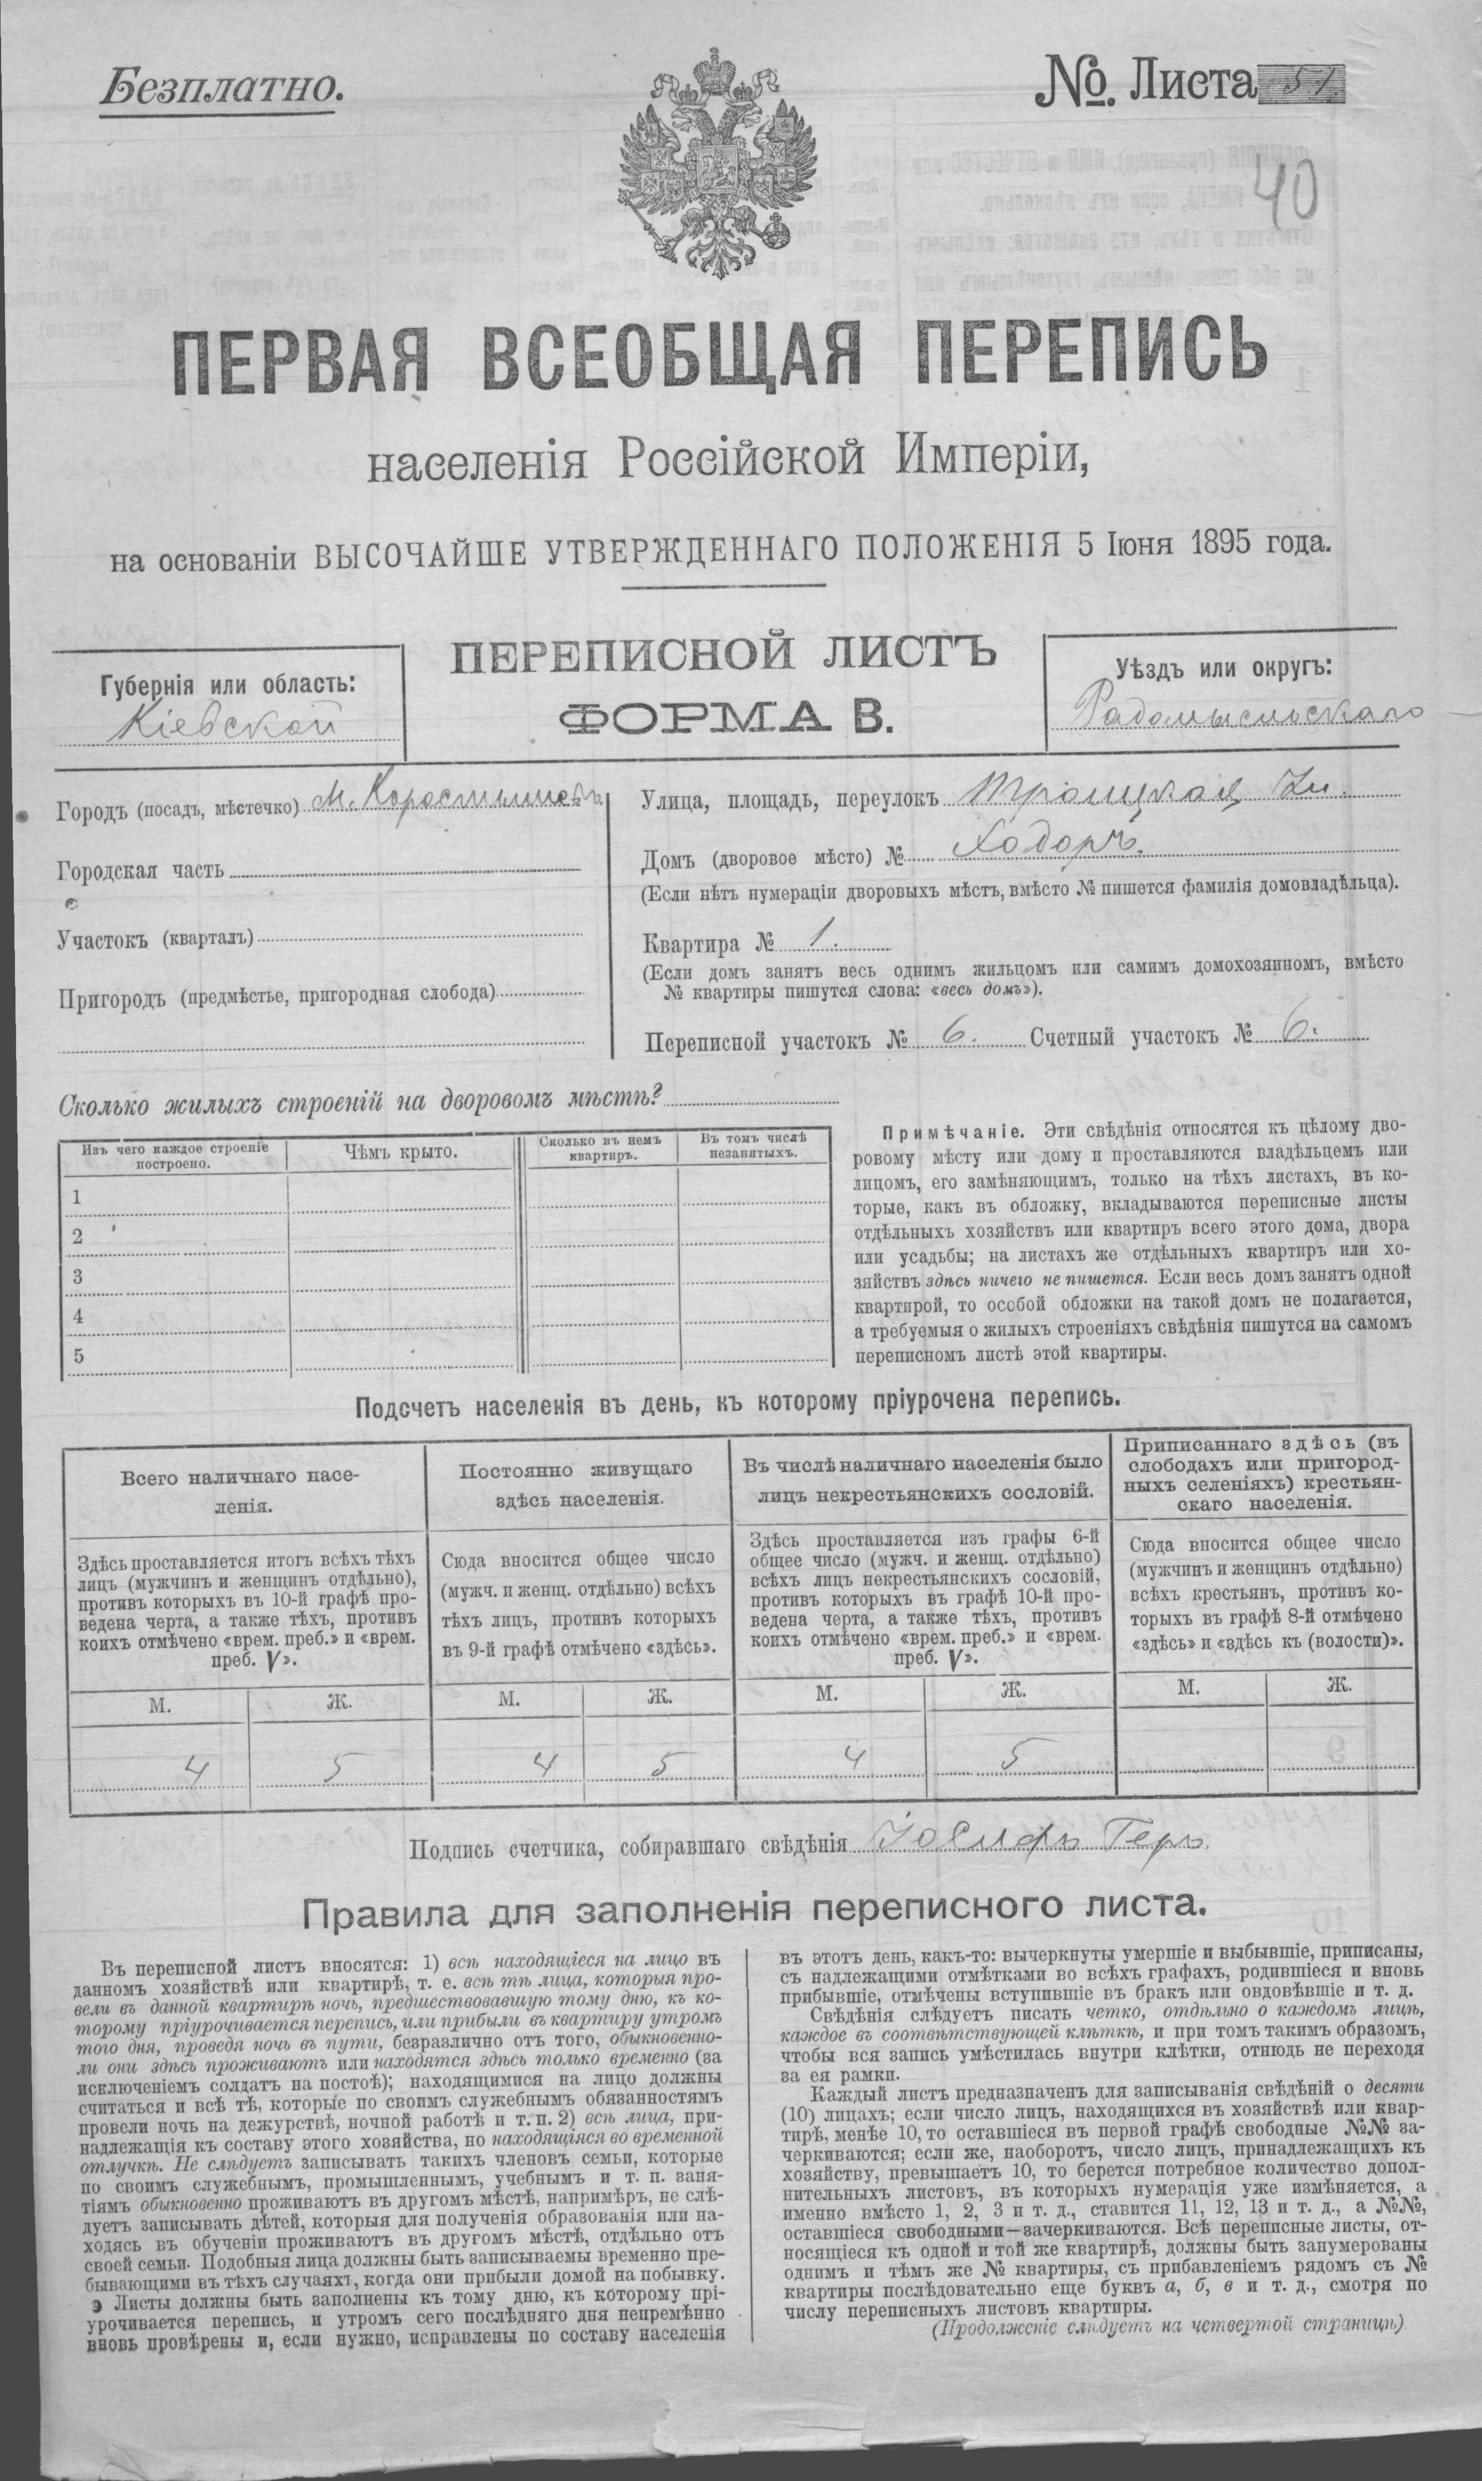 Безплатно.
№. Листа 51.
40
ПЕРВАЯ ВСЕОБЩАЯ ПЕРЕПИСЬ
населенія Россійской Имперіи,
на основаніи ВЫСОЧАЙШЕ УТВЕРЖДЕННАГО ПОЛОЖЕНІЯ 5 Іюня 1895 года.
ПЕРЕПИСНОЙ ЛИСТЪ
ФОРМА В.
Губернія или область:
Кіевской
Уѣздъ или округъ:
Радомысльскаго
Городъ (посадъ, мѣстечко) м. Коростышевъ
Городская часть
Участокъ (кварталъ)
Пригородъ (предмѣстье, пригородная слобода)
Улица, площадь, переулокъ Троицкая Ул.
Домъ (дворовое мѣсто) № Ходоръ.
(Если нѣтъ нумераціи дворовыхъ мѣстъ, вмѣсто № пишется фамилія домовладѣльца).
Квартира № 1.
(Если домъ занятъ весь однимъ жильцомъ или самимъ домохозяиномъ, вмѣсто
№ квартиры пишутся слова: «весь домъ»).
Переписной участокъ № 6. Счетный участокъ № 6.
Сколько жилыхъ строеній на дворовомъ мѣстѣ?
Изъ чего каждое строеніе
построено.
Чѣмъ крыто.
Сколько въ немъ
квартиръ.
Въ томъ числѣ
незанятыхъ.
1
2
3
4
5
Примѣчаніе. Эти свѣдѣнія относятся къ цѣлому дво-
ровому мѣсту или дому и проставляются владѣльцемъ или
лицомъ, его замѣняющимъ, только на тѣхъ листахъ, въ ко-
торые, какъ въ обложку, вкладываются переписные листы
отдѣльныхъ хозяйствъ или квартиръ всего этого дома, двора
или усадьбы; на листахъ же отдѣльныхъ квартиръ или хо-
зяйствъ здѣсь ничего не пишется. Если весь домъ занятъ одной
квартирой, то особой обложки на такой домъ не полагается,
а требуемыя о жилыхъ строеніяхъ свѣдѣнія пишутся на самомъ
переписномъ листѣ этой квартиры.
Подсчетъ населенія въ день, къ которому пріурочена перепись.
Всего наличнаго насе-
ленія.
Постоянно живущаго
здѣсь населенія.
Въ числѣ наличнаго населенія было
лицъ некрестьянскихъ сословій.
Приписаннаго здѣсь (въ
слободахъ или пригород-
ныхъ селеніяхъ) крестьян-
скаго населенія.
Здѣсь проставляется итогъ всѣхъ тѣхъ
лицъ (мужчинъ и женщинъ отдѣльно),
противъ которыхъ въ 10-й графѣ про-
ведена черта, а также тѣхъ, противъ
коихъ отмѣчено «врем. преб.» и «врем.
преб. V».
Сюда вносится общее число
(мужч. и женщ. отдѣльно) всѣхъ
тѣхъ лицъ, противъ которыхъ
въ 9-й графѣ отмѣчено «здѣсь».
Здѣсь проставляется изъ графы 6-й
общее число (мужч. и женщ. отдѣльно)
всѣхъ лицъ некрестьянскихъ сословій,
противъ которыхъ въ графѣ 10-й про-
ведена черта, а также тѣхъ, противъ
коихъ отмѣчено «врем. преб.» и «врем.
преб. V».
Сюда вносится общее число
(мужчинъ и женщинъ отдѣльно)
всѣхъ крестьянъ, противъ ко-
торыхъ въ графѣ 8-й отмѣчено
«здѣсь» и «здѣсь къ (волости)».
М. Ж. М. Ж. М. Ж. М. Ж.
4 5 4 5 4 5
Подпись счетчика, собиравшаго свѣдѣнія Іосифъ Геръ
Правила для заполненія переписного листа.
Въ переписной листъ вносятся: 1) всѣ находящіеся на лицо въ
данномъ хозяйствѣ или квартирѣ, т. е. всѣ тѣ лица, которыя про-
вели въ данной квартирѣ ночь, предшествовавшую тому дню, къ ко-
торому пріурочивается перепись, или прибыли въ квартиру утромъ
того дня, проведя ночь въ пути, безразлично отъ того, обыкновенно-
ли они здѣсь проживаютъ или находятся здѣсь только временно (за
исключеніемъ солдатъ на постоѣ); находящимися на лицо должны
считаться и всѣ тѣ, которые по своимъ служебнымъ обязанностямъ
провели ночь на дежурствѣ, ночной работѣ и т. п. 2) всѣ лица, при-
надлежащія къ составу этого хозяйства, но находящіяся во временной
отлучкѣ. Не слѣдуетъ записывать такихъ членовъ семьи, которые
по своимъ служебнымъ, промышленнымъ, учебнымъ и т. п. заня-
тіямъ обыкновенно проживаютъ въ другомъ мѣстѣ, напримѣръ, не слѣ-
дуетъ записывать дѣтей, которыя для полученія образованія или на-
ходясь въ обученіи проживаютъ въ другомъ мѣстѣ, отдѣльно отъ
своей семьи. Подобныя лица должны быть записываемы временно пре-
бывающими въ тѣхъ случаяхъ, когда они прибыли домой на побывку.
Листы должны быть заполнены къ тому дню, къ которому прі-
урочивается перепись, и утромъ сего послѣдняго дня непремѣнно
вновь провѣрены и, если нужно, исправлены по составу населенія
въ этотъ день, какъ-то: вычеркнуты умершіе и выбывшіе, приписаны,
съ надлежащими отмѣтками во всѣхъ графахъ, родившіеся и вновь
прибывшіе, отмѣчены вступившіе въ бракъ или овдовѣвшіе и т. д.
Свѣдѣнія слѣдуетъ писать четко, отдѣльно о каждомъ лицѣ,
каждое въ соотвѣтствующей клѣткѣ, и при томъ такимъ образомъ,
чтобы вся запись умѣстилась внутри клѣтки, отнюдь не переходя
за ея рамки.
Каждый листъ предназначенъ для записыванія свѣдѣній о десяти
(10) лицахъ; если число лицъ, находящихся въ хозяйствѣ или квар-
тирѣ, менѣе 10, то оставшіеся въ первой графѣ свободные №№ за-
черкиваются; если же, наоборотъ, число лицъ, принадлежащихъ къ
хозяйству, превышаетъ 10, то берется потребное количество допол-
нительныхъ листовъ, въ которыхъ нумерація уже измѣняется, а
именно вмѣсто 1, 2, 3 и т. д., ставится 11, 12, 13 и т. д., а №№,
оставшіеся свободными—зачеркиваются. Всѣ переписные листы, от-
носящіеся къ одной и той же квартирѣ, должны быть занумерованы
однимъ и тѣмъ же № квартиры, съ прибавленіемъ рядомъ съ №
квартиры послѣдовательно еще буквъ а, б, в и т. д., смотря по
числу переписныхъ листовъ квартиры.
(Продолженіе слѣдуетъ на четвертой страницѣ)